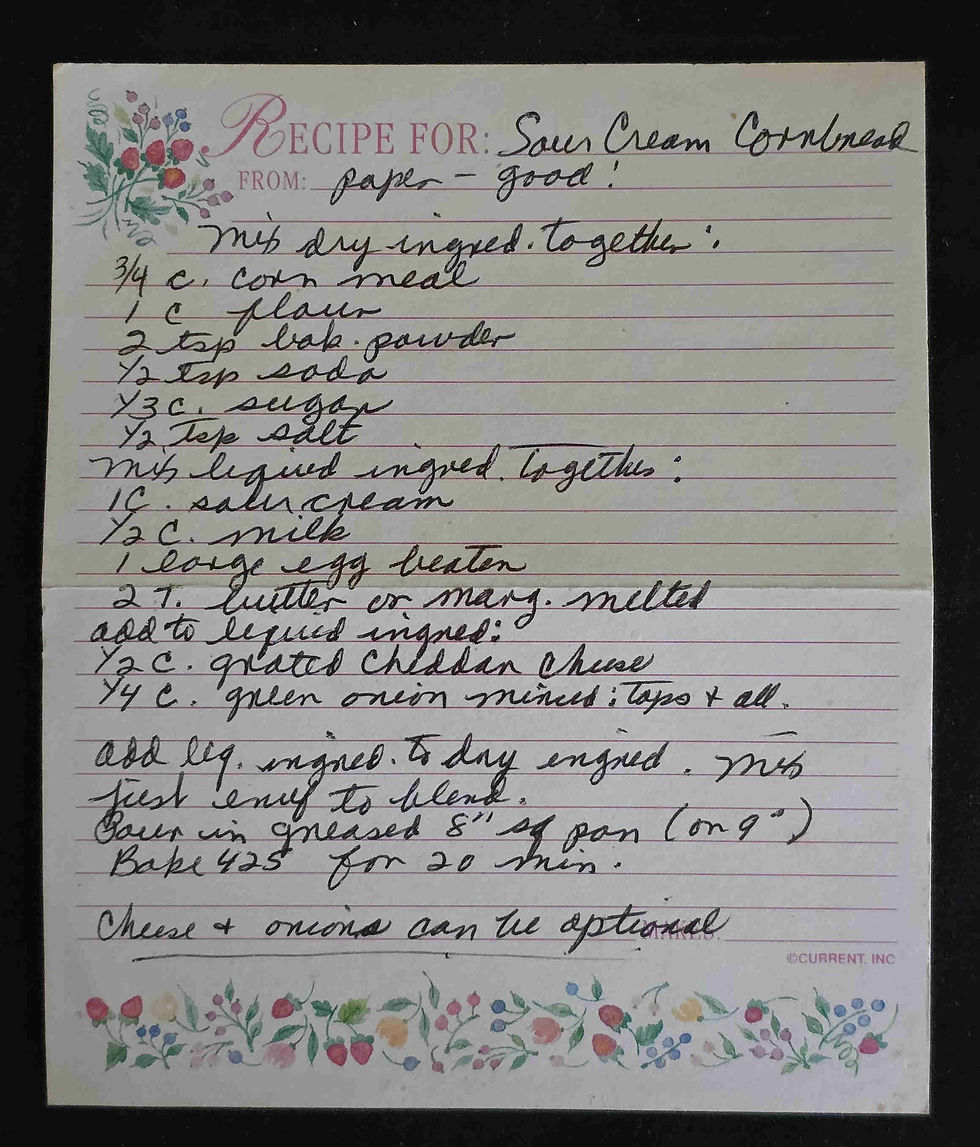 RECIPE FOR: Sour Cream Cornbread
FROM: paper - good!
Mix dry ingred. together:
3/4 c. corn meal
1 c flour
2 tsp bak. powder
1/2 tsp soda
1/3 c. sugar
1/2 tsp salt
Mix liquid ingred. together:
1C. sour cream
1/2 C. milk
1 large egg beaten
2 T. butter or marg. melted
add to liquid ingred:
1/2 C. grated cheddar cheese
1/4 C. green onion minced; tops + all.
add liq. ingred. to dry ingred. Mix
just enuf to blend.
Pour in greased 8" sq pan (or 9")
Bake 425° for 20 min.
Cheese + onions can be optional
MAKES:
©CURRENT, INC